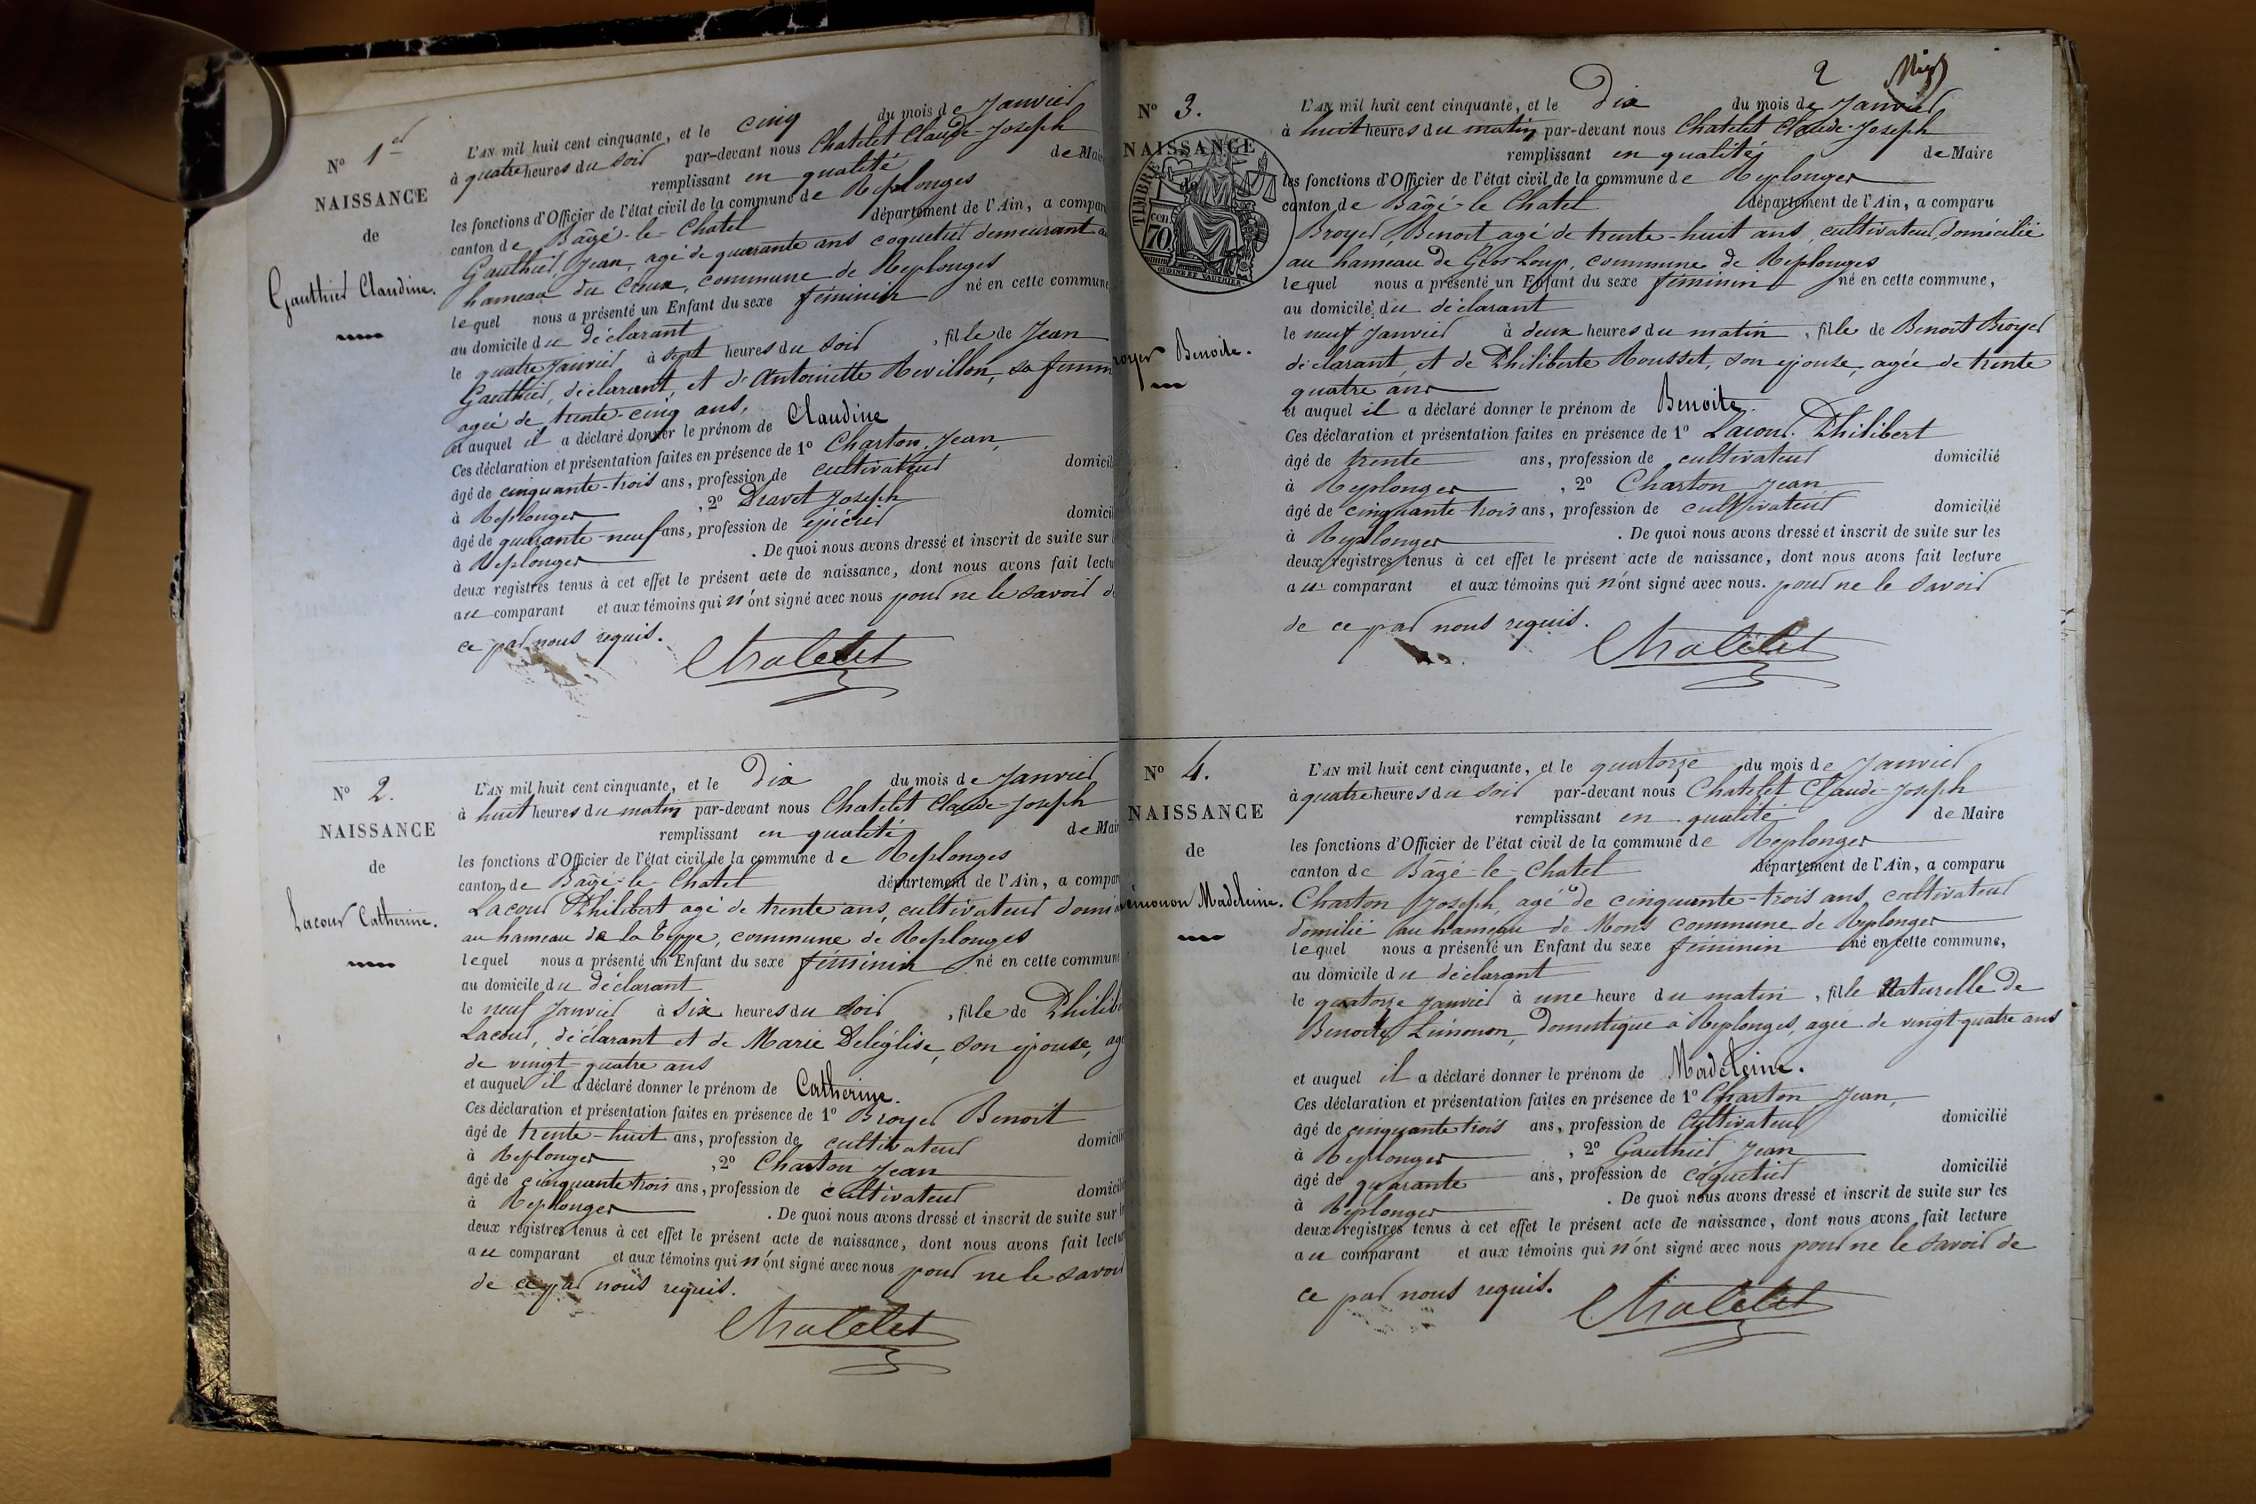 N° 1er
NAISSANCE
de
Gauthier Claudine.
L'AN mil huit cent cinquante, et le cinq du mois de Janvier
à quatre heures du soir par-devant nous Chatelet Claude-Joseph
remplissant en qualité de Mai
les fonctions d'Officier de l'état civil de la commune de Replonges
canton de Bâgé-le-Chatel département de l'Ain, a compar
Gauthier, Jean, agé de quarante ans coquetier demeurant au
hameau du Creux, commune de Replonges
lequel nous a présenté un Enfant du sexe féminin né en cette commune
au domicile du déclarant
le quatre Janvier à sept heures du soir, fille de Jean
Gauthier, déclarant, et de Antoinette Revillon, sa femm
agée de trente-cinq ans,
et auquel il a déclaré donner le prénom de Claudine
Ces déclaration et présentation faites en présence de 1° Charton, Jean,
âgé de cinquante-trois ans, profession de cultivateur domicil
à Replonges, 2° Dravet Joseph
âgé de quarante-neuf ans, profession de épicier domicil
à Replonges. De quoi nous avons dressé et inscrit de suite sur
deux registres tenus à cet effet le présent acte de naissance, dont nous avons fait lectu
au comparant et aux témoins qui n'ont signé avec nous pour ne le savoir de
ce par nous requis.
Chatelet
N° 2.
NAISSANCE
de
Lacour Catherine.
L'AN mil huit cent cinquante, et le Dix du mois de Janvier
à huit heures du matin par-devant nous Chatelet Claude-Joseph
remplissant en qualité de Mair
les fonctions d'Officier de l'état civil de la commune de Replonges
canton de Bâgé-le-Chatel département de l'Ain, a compar
Lacour Philibert agé de trente ans, cultivateur domi
au hameau de la Teppe, commune de Replonges
lequel nous a présenté un Enfant du sexe féminin né en cette commun
au domicile du déclarant
le neuf Janvier à six heures du soir, fille de Philib
Lacour, déclarant et de Marie Deléglise, son épouse, ag
de vingt-quatre ans
et auquel il a déclaré donner le prénom de Catherine.
Ces déclaration et présentation faites en présence de 1° Broyer Benoit
âgé de trente-huit ans, profession de cultivateur domicili
à Replonges, 2° Charton Jean
âgé de cinquante trois ans, profession de cultivateur domicili
à Replonges. De quoi nous avons dressé et inscrit de suite sur
deux registres tenus à cet effet le présent acte de naissance, dont nous avons fait lectu
au comparant et aux témoins qui n'ont signé avec nous pour ne le savoir
de ce par nous requis.
Chatelet
2
N° 3.
NAISSANCE
de
TIMBRE
70 cen
royer Benoite.
L'AN mil huit cent cinquante, et le Dix du mois de Janvier
à huit heures du matin par-devant nous Chatelet Claude-Joseph
remplissant en qualité de Maire
les fonctions d'Officier de l'état civil de la commune de Replonges
canton de Bâgé-le-Chatel département de l'Ain, a comparu
Broyer, Benoit agé de trente-huit ans, cultivateur, domicilié
au hameau de Gros Loup, commune de Replonges
lequel nous a présenté un Enfant du sexe féminin né en cette commune,
au domicile du déclarant
le neuf Janvier à deux heures du matin, fille de Benoit Broyer
déclarant, et de Philiberte Rousset, son épouse, agée de trente
quatre ans
et auquel il a déclaré donner le prénom de Benoite.
Ces déclaration et présentation faites en présence de 1° Lacour. Philibert
âgé de trente ans, profession de cultivateur domicilié
à Replonges, 2° Charton Jean
âgé de cinquante-trois ans, profession de cultivateur domicilié
à Replonges. De quoi nous avons dressé et inscrit de suite sur les
deux registres tenus à cet effet le présent acte de naissance, dont nous avons fait lecture
au comparant et aux témoins qui n'ont signé avec nous. pour ne le savoir
de ce par nous requis.
Chatelet
N° 4.
NAISSANCE
de
émonon Madeleine.
L'AN mil huit cent cinquante, et le quatorze du mois de Janvier
à quatre heures du soir par-devant nous Chatelet Claude-Joseph
remplissant en qualité de Maire
les fonctions d'Officier de l'état civil de la commune de Replonges
canton de Bâgé-le-Chatel département de l'Ain, a comparu
Charton Joseph, agé de cinquante-trois ans cultivateur
domilié au hameau de Mons commune de Replonges
lequel nous a présenté un Enfant du sexe féminin né en cette commune,
au domicile du déclarant
le quatorze Janvier à une heure du matin, fille Naturelle de
Benoite Lémonon, Domestique à Replonges, agée de vingt-quatre ans
et auquel il a déclaré donner le prénom de Madeleine.
Ces déclaration et présentation faites en présence de 1° Charton Jean,
âgé de cinquante trois ans, profession de Cultivateur domicilié
à Replonges, 2° Gauthier, Jean
âgé de quarante ans, profession de coquetier domicilié
à Replonges. De quoi nous avons dressé et inscrit de suite sur les
deux registres tenus à cet effet le présent acte de naissance, dont nous avons fait lecture
au comparant et aux témoins qui n'ont signé avec nous pour ne le savoir de
ce par nous requis.
Chatelet